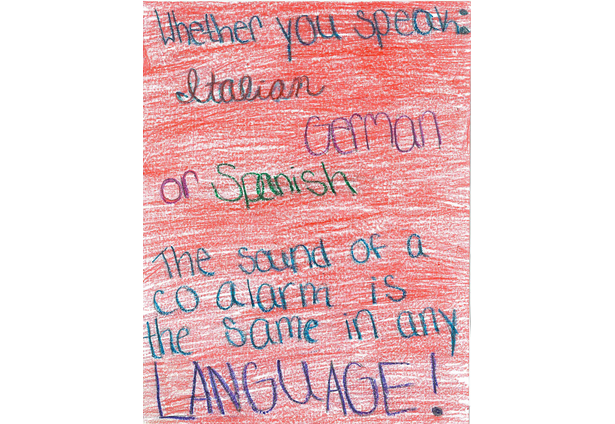 Whether you speak:
Italian
German
or Spanish
The sound of a
co alarm is
the same in any
LANGUAGE!